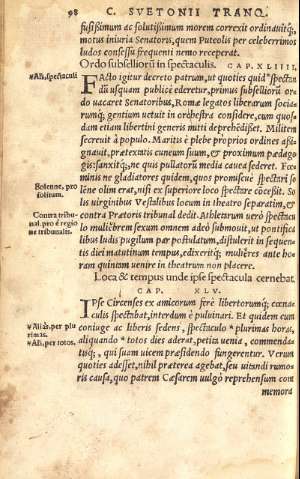 98 C. SVETONII TRANQ.
fusissimum ac solutissimum morem correxit ordinauitq́;
motus iniuria Senatoris, quem Puteolis per celeberrimos
ludos consessu frequenti nemo receperat.
Ordo subselliorū in spectaculis. CAP. XLIIII.
*Ali. spectaculi
FActo igitur decreto patrum, ut quoties quid* spectan
dū usquam publice ederetur, primus subselliorū or
do uacaret Senatoribus, Romæ legatos liberarum socia
rumq́; gentium uetuit in orchestra considere, cum quos-
dam etiam libertini generis mitti deprehēdisset. Militem
secreuit à populo. Maritis è plebe proprios ordines assi-
gnauit, prætextatis cuneum suum, & proximum pædago
gis: sanxitq́; ne quis pullatorū media cauea sederet. Fœ
minis ne gladiatores quidem, quos promiscue spectari so
Bolenne, pro
solitum.
lēne olim erat, nisi ex superiore loco spectare cōcessit. So
lis uirginibus Vestalibus locum in theatro separatim, &
Contra tribu-
nal. pro è regio
ne tribunalis.
contra Prætoris tribunal dedit. Athletarum uerò spectacu
lo muliebrem sexum omnem adeò submouit, ut pontifica
libus ludis pugilum par postulatum, distulerit in sequen-
tis diei matutinum tempus, edixeritq́; mulieres ante ho-
ram quintam uenire in theatrum non placere.
Loca & tempus unde ipse spectacula cernebat.
CAP. XLV.
IPse Circenses ex amicorum ferè libertorumq́; cœna-
culis spectabat, interdum è puluinari. Et quidem cum
*Aliàs. per plu
rimas.
coniuge ac liberis sedens, spectaculo * plurimas horas,
*Ali. per totos.
aliquando * totos dies aderat, petita uenia, commenda-
tisq́; , qui suam uicem præsidendo fungerentur. Verum
quoties adesset, nihil præterea agebat, seu uitandi rumo-
ris causa, quo patrem Cæsarem uulgò reprehensum com
memora